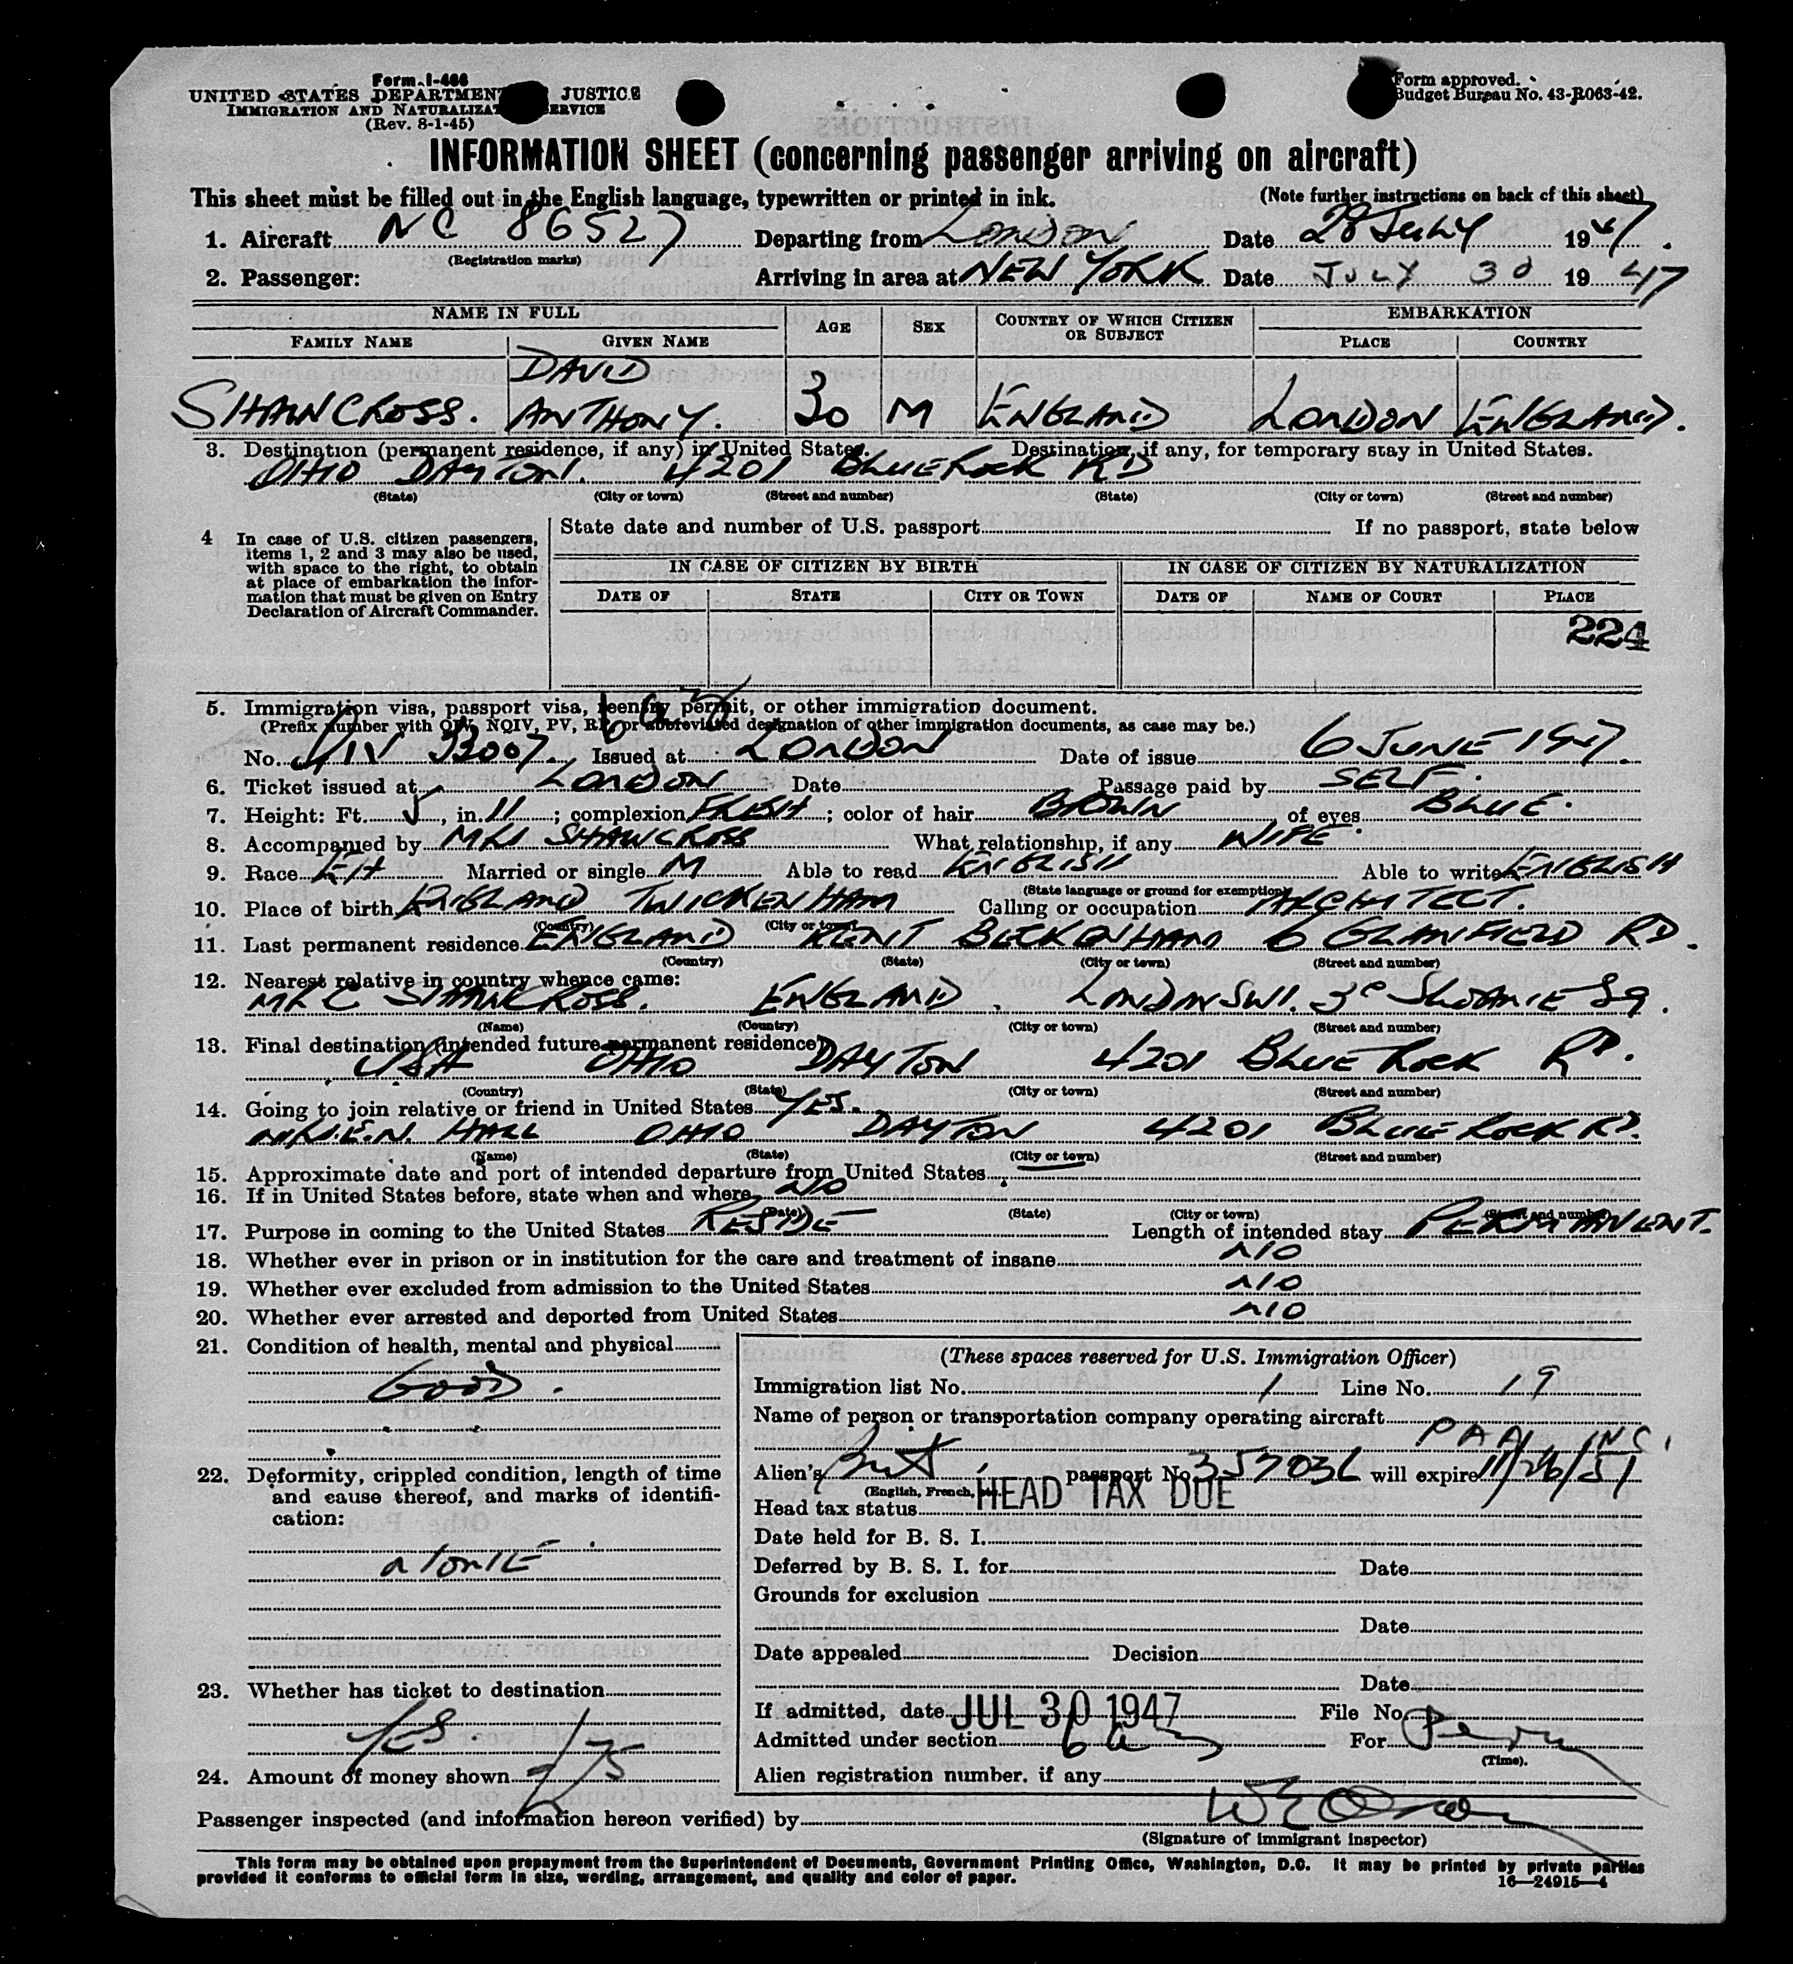 Form I-466
UNITED STATES DEPARTMENT JUSTICE
IMMIGRATION AND NATURALIZAT ERVICE
(Rev. 8-1-45)
Form approved.
Budget Bureau No. 43-R063-42.
INFORMATION SHEET (concerning passenger arriving on aircraft)
This sheet must be filled out in the English language, typewritten or printed in ink. (Note further instructions on back of this sheet)
1. Aircraft NC 86527 Departing from LONDON Date 28 JULY 1947.
(Registration marks)
2. Passenger: Arriving in area at NEW YORK Date JULY 30 1947
NAME IN FULL AGE SEX COUNTRY OF WHICH CITIZEN OR SUBJECT EMBARKATION
FAMILY NAME GIVEN NAME PLACE COUNTRY
DAVID
SHAWCROSS. ANTHONY. 30 M ENGLAND LONDON ENGLAND.
3. Destination (permanent residence, if any) in United States. Destination, if any, for temporary stay in United States.
OHIO DAYTON. 4201 BLUE ROCK RD
(State) (City or town) (Street and number) (State) (City or town) (Street and number)
4 In case of U.S. citizen passengers, items 1, 2 and 3 may also be used, with space to the right, to obtain at place of embarkation the information that must be given on Entry Declaration of Aircraft Commander.
State date and number of U.S. passport If no passport, state below
IN CASE OF CITIZEN BY BIRTH IN CASE OF CITIZEN BY NATURALIZATION
DATE OF STATE CITY OR TOWN DATE OF NAME OF COURT PLACE
224
5. Immigration visa, passport visa, reentry permit, or other immigration document.
(Prefix number with QIV, NQIV, PV, RP, or abbreviated designation of other immigration documents, as case may be.)
No. 33007. Issued at LONDON Date of issue 6 JUNE 1947.
6. Ticket issued at LONDON Date Passage paid by SELF.
7. Height: Ft. 5, in. 11; complexion FRESH; color of hair BROWN, of eyes BLUE.
8. Accompanied by MRS SHAWCROSS What relationship, if any WIFE.
9. Race Married or single M Able to read ENGLISH Able to write ENGLISH
(State language or ground for exemption)
10. Place of birth ENGLAND TWICKENHAM Calling or occupation ARCHITECT.
(Country) (City or town)
11. Last permanent residence ENGLAND KENT BECKENHAM 6 GLANFIELD RD.
(Country) (State) (City or town) (Street and number)
12. Nearest relative in country whence came:
MR C SHAWCROSS. ENGLAND. LONDON SW1. SLOANE SQ.
(Name) (Country) (City or town) (Street and number)
13. Final destination (intended future permanent residence)
USA OHIO DAYTON 4201 BLUE ROCK RD.
(Country) (State) (City or town) (Street and number)
14. Going to join relative or friend in United States YES.
E.N. HALL OHIO DAYTON 4201 BLUE ROCK RD.
(Name) (State) (City or town) (Street and number)
15. Approximate date and port of intended departure from United States
16. If in United States before, state when and where NO
(Date) (State) (City or town) (Street and number)
17. Purpose in coming to the United States RESIDE Length of intended stay PERMANENT.
18. Whether ever in prison or in institution for the care and treatment of insane NO
19. Whether ever excluded from admission to the United States NO
20. Whether ever arrested and deported from United States NO
21. Condition of health, mental and physical
GOOD.
22. Deformity, crippled condition, length of time and cause thereof, and marks of identification:
NONE.
23. Whether has ticket to destination
YES.
24. Amount of money shown 75
(These spaces reserved for U.S. Immigration Officer)
Immigration list No. 1 Line No. 19
Name of person or transportation company operating aircraft
PAA, INC.
Alien's Brit. passport No. 357036 will expire 11/26/51
(English, French, etc.)
Head tax status HEAD TAX DUE
Date held for B. S. I.
Deferred by B. S. I. for Date
Grounds for exclusion
Date
Date appealed Decision
Date
If admitted, date JUL 30 1947 File No.
Admitted under section 6 a 3 For Perm
(Time).
Alien registration number, if any
Passenger inspected (and information hereon verified) by
(Signature of immigrant inspector)
This form may be obtained upon prepayment from the Superintendent of Documents, Government Printing Office, Washington, D.C. It may be printed by private parties
provided it conforms to official form in size, wording, arrangement, and quality and color of paper.
16—24915—4